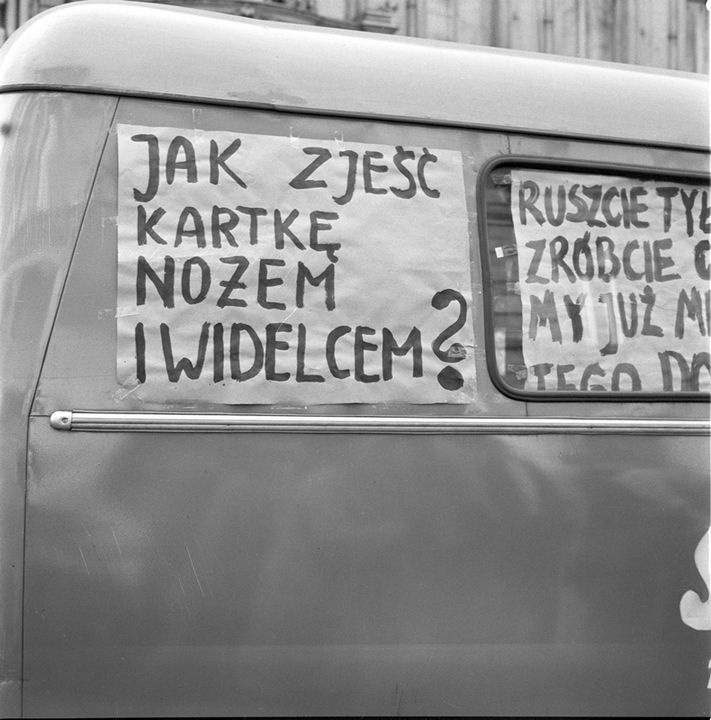 JAK ZJEŚĆ
KARTKĘ
NOŻEM
I WIDELCEM?
RUSZCIE
ZRÓBCIE
MY JUŻ
TEGO